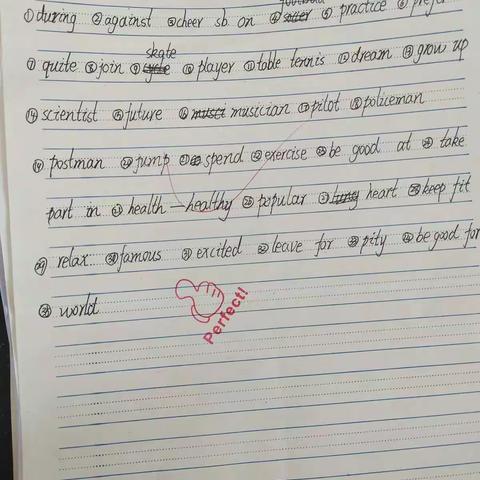 ①during ②against ③cheer sb on ④ ⑤ practice ⑥
skate
⑦ quite ⑧join ⑨ ⑩ player ⑪table tennis ⑫dream ⑬grow up
⑭scientist ⑮future ⑯ musician ⑰pilot ⑱policeman
⑲ postman ⑳jump ㉑ spend ㉒exercise ㉓be good at ㉔ take
part in ㉕ health — healthy ㉖ popular ㉗ heart ㉘keep fit
㉙ relax ㉚famous ㉛ excited ㉜ leave for ㉝ pity ㉞ be good for
㉟ world
Perfect!